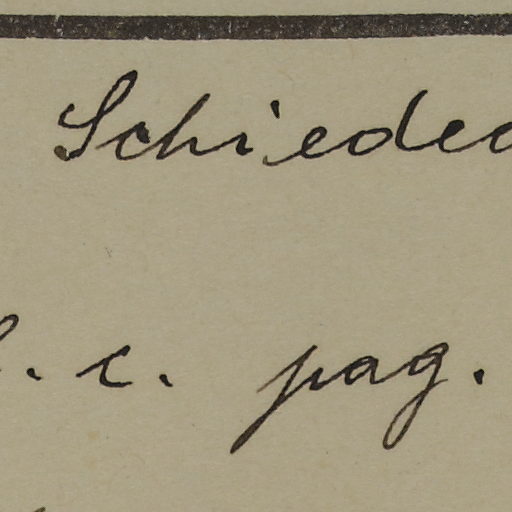 Schieded
l. c. pag.